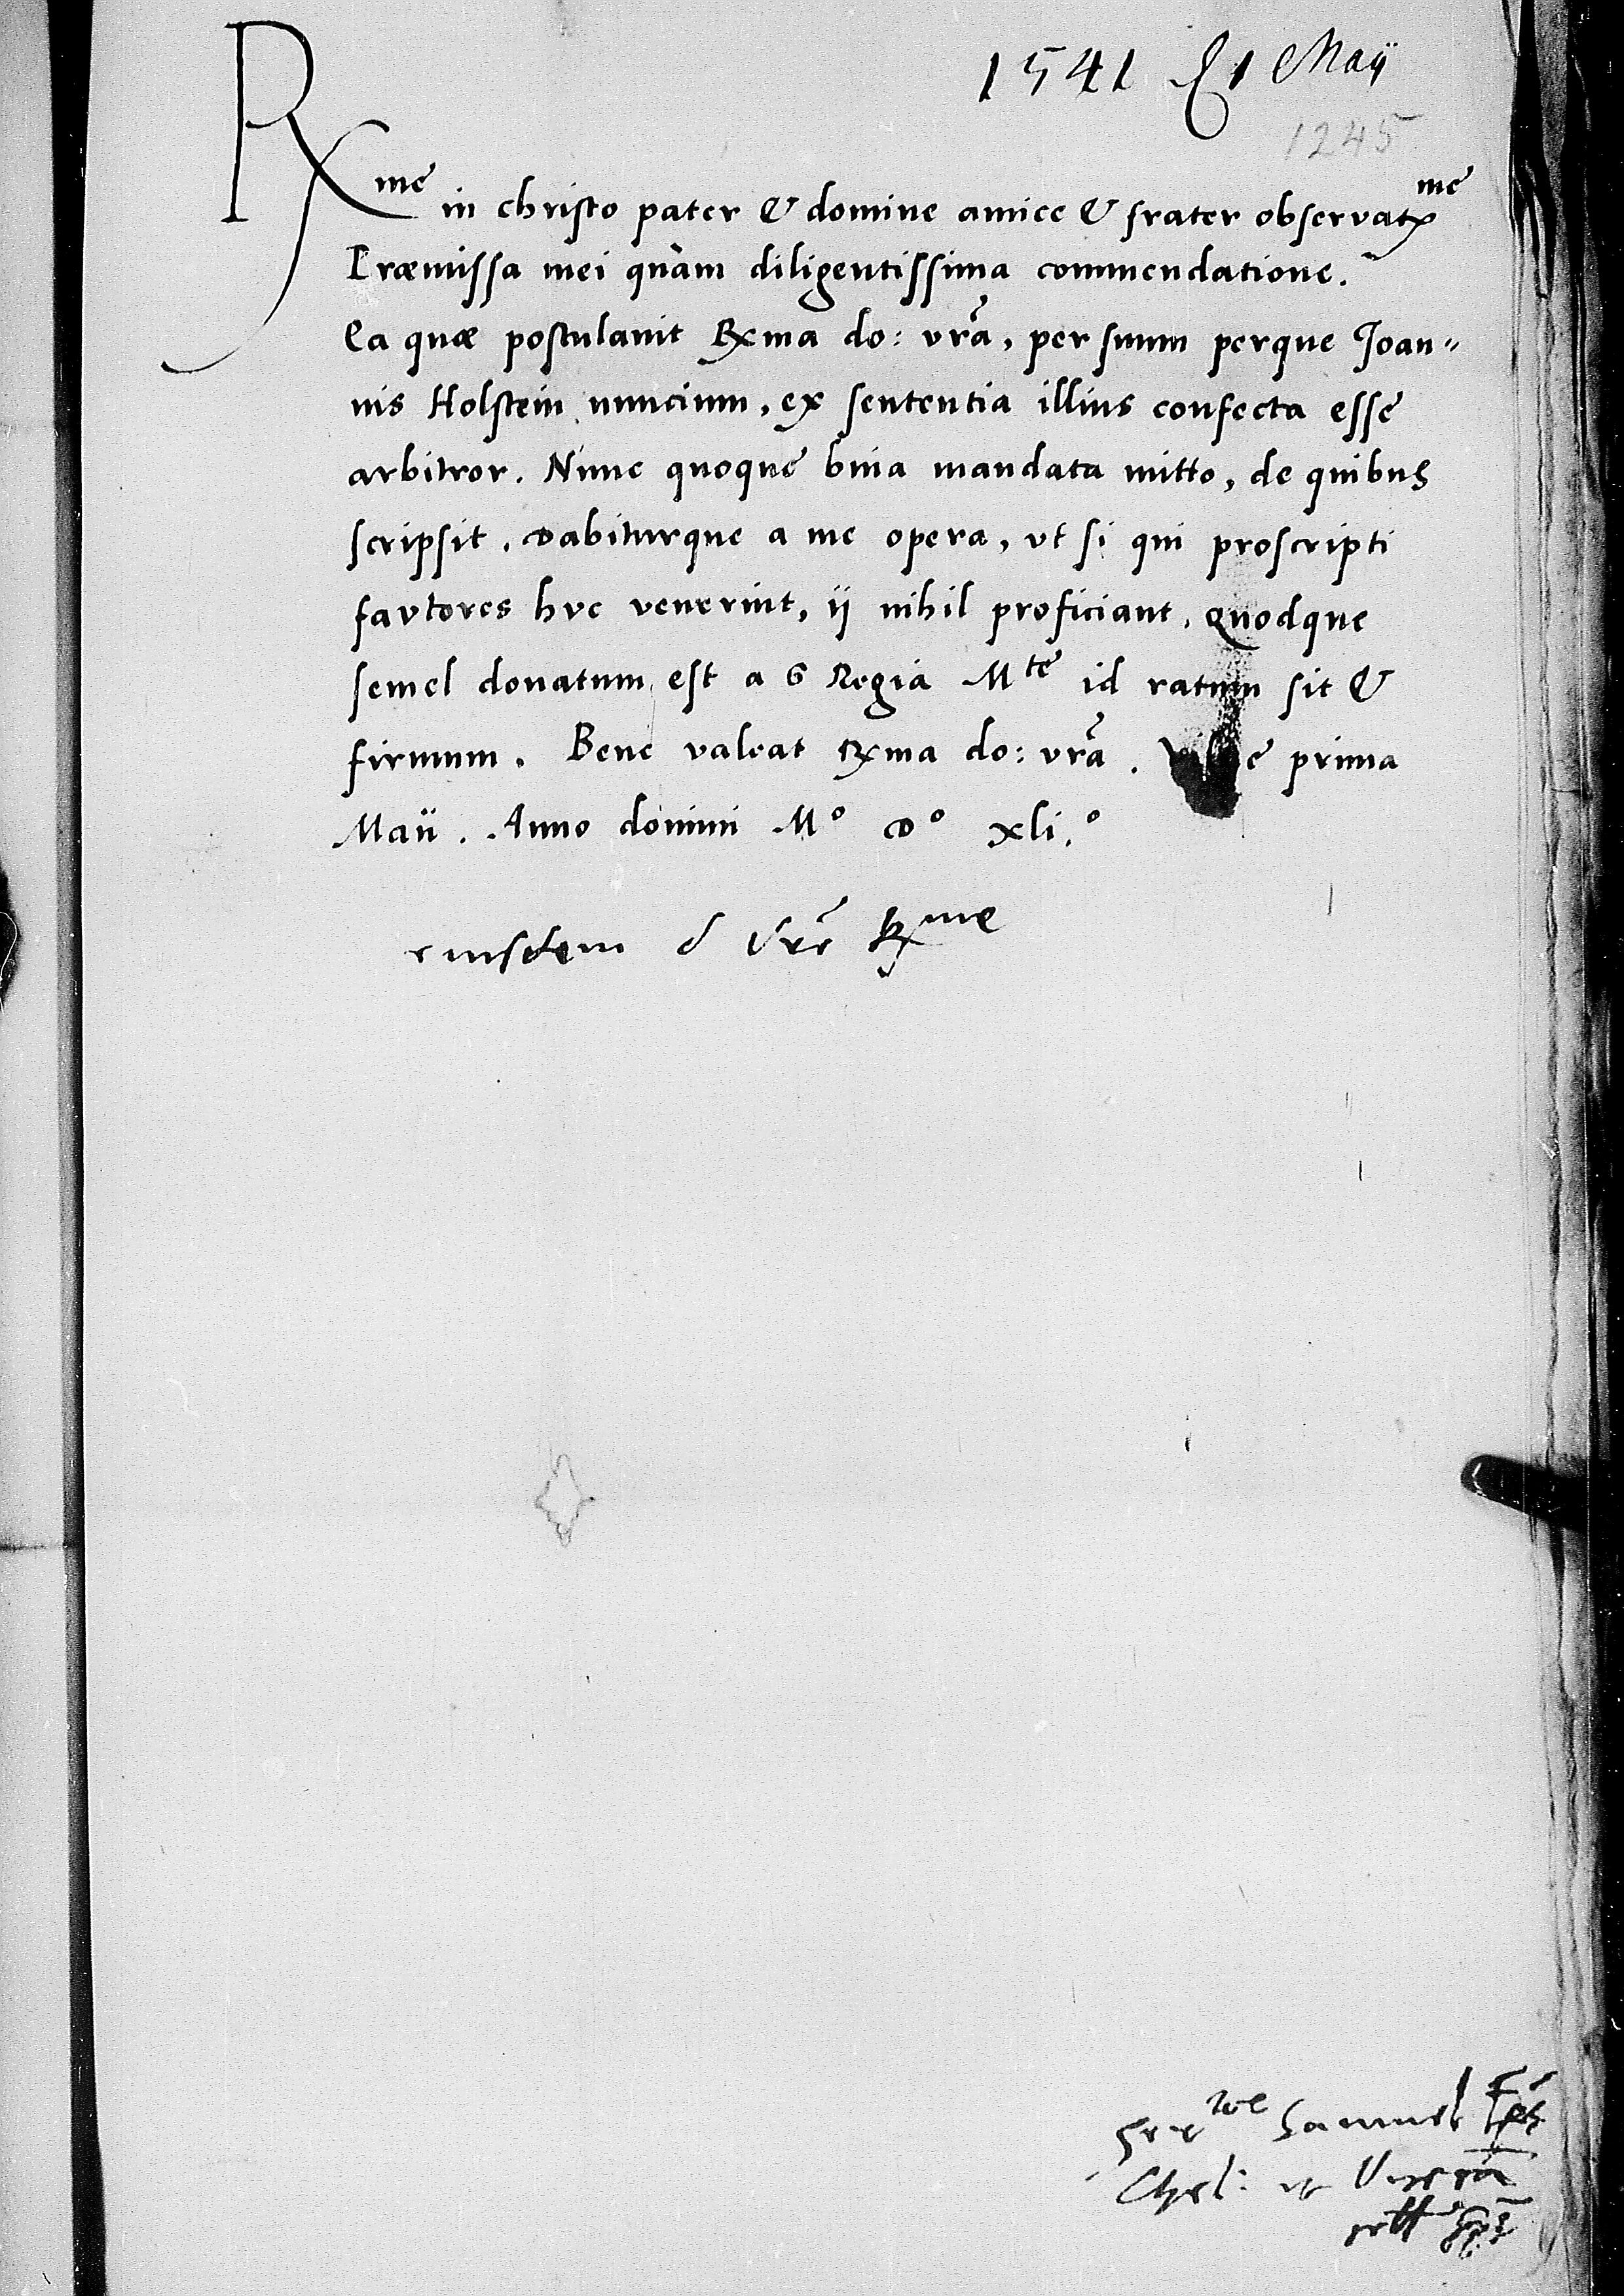 1541 1 Maij
1245
Rxme in christo pater & domine amice & frater observatxme
Præmissa mei quàm diligentissima commendatione.
Ea quæ postulauit Rxma do: vrã, per suum perque Joan„
nis Holstein nuncium, ex sententia illius confecta esse
arbitror. Nunc quoque bina mandata mitto, de quibus
scripsit. Dabiturque a me opera, vt si qui proscripti
favtores hvc venerint, ij nihil proficiant, quodque
semel donatum est a S Regia Mte id ratum sit &
firmum. Bene valeat Rxma do: vrã. prima
Maii. Anno domini Mo Do xli.o
eiusdem d Vrẽ Rxme
Samuel Eps
Chel: et